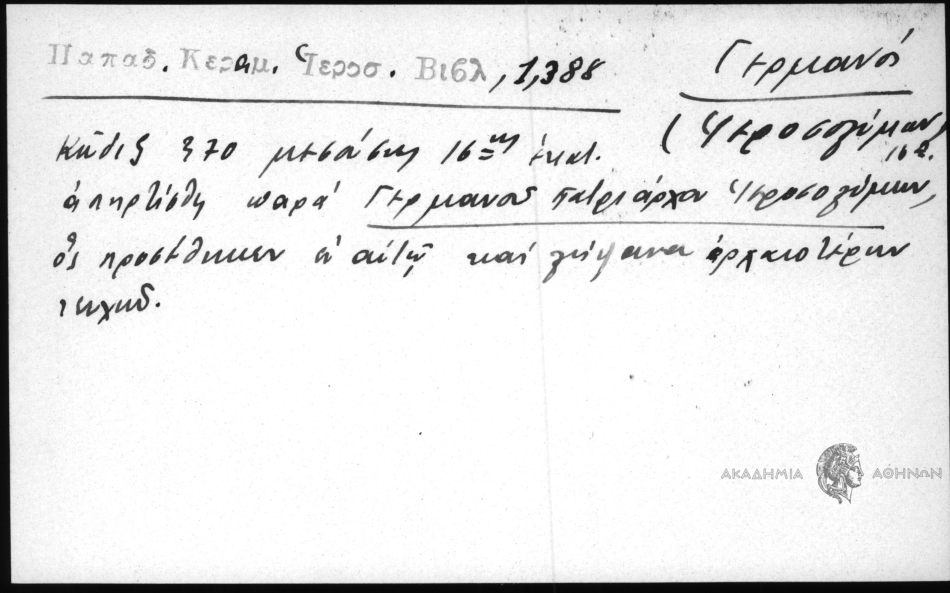 Παπαδ. Κεραμ. Ἱεροσ. Βιβλ, 1,388
Γερμανός
(Ἱεροσολύμων)
16 ε.
Κῶδιξ 370 μεσάσης 16ης ἑκατ.
ἀπηρτίσθη παρά Γερμανοῦ πατριάρχου Ἱεροσολύμων,
ὅς προσέθηκεν ἐν αὐτῷ καί λείψανα ἀρχαιοτέρων
τευχῶν.
ΑΚΑΔΗΜΙΑ ΑΘΗΝΩΝ